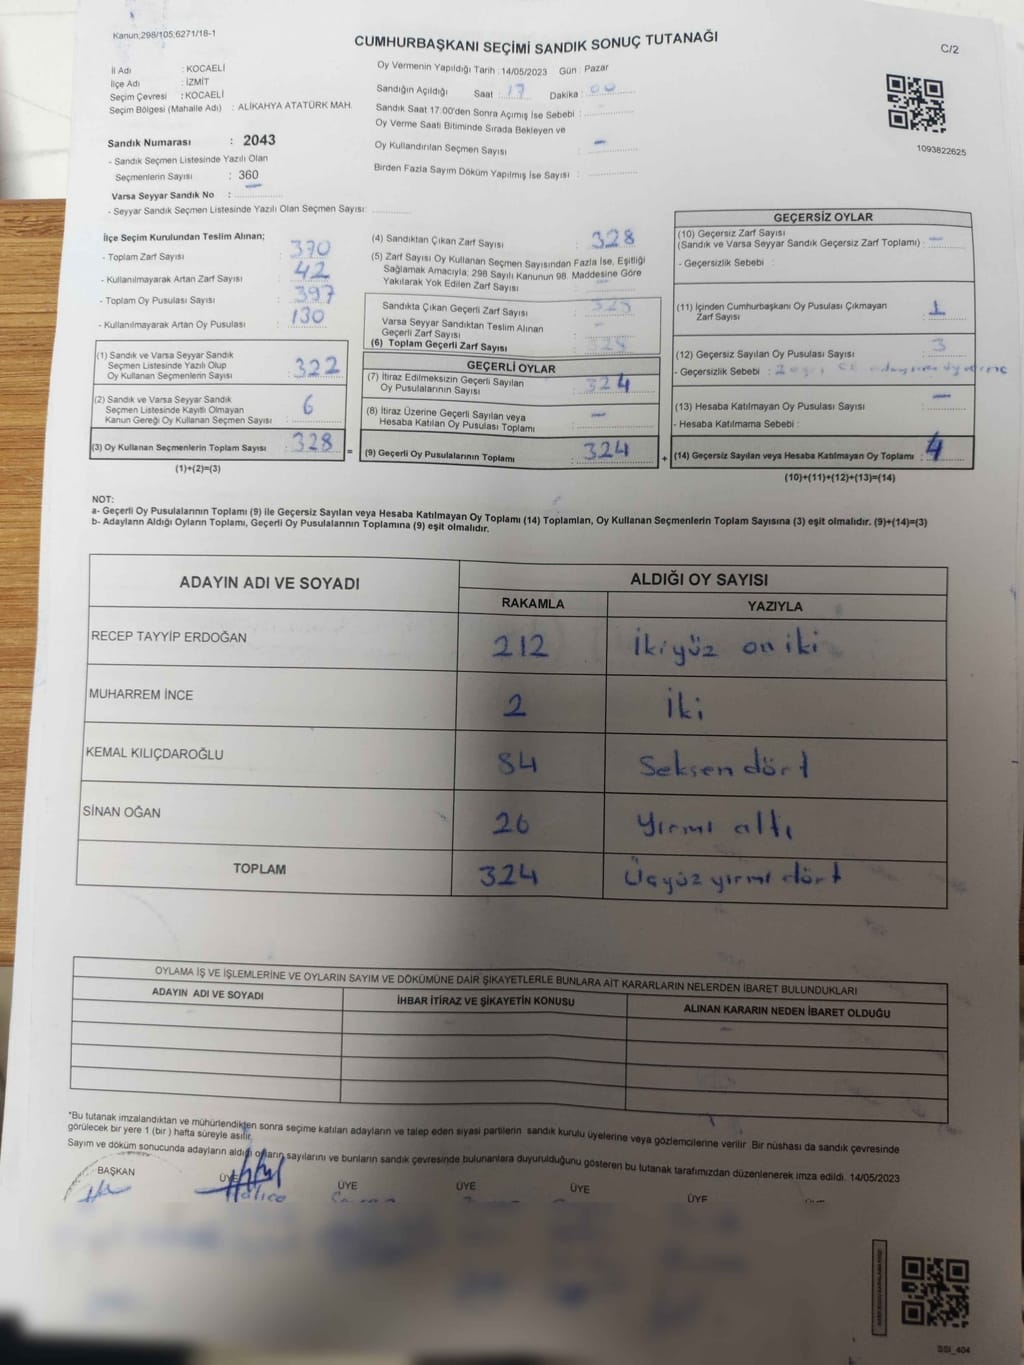 Kanun;298/105;6271/18-1
CUMHURBAŞKANI SEÇİMİ SANDIK SONUÇ TUTANAĞI
C/2
İl Adı : KOCAELİ
İlçe Adı : İZMİT
Seçim Çevresi : KOCAELİ
Seçim Bölgesi (Mahalle Adı) : ALİKAHYA ATATÜRK MAH.
Oy Vermenin Yapıldığı Tarih : 14/05/2023 Gün : Pazar
Sandığın Açıldığı Saat : 17 Dakika : 00
Sandık Saat 17.00'den Sonra Açımış İse Sebebi :
Oy Verme Saati Bitiminde Sırada Bekleyen ve
Oy Kullandırılan Seçmen Sayısı : -
Birden Fazla Sayım Döküm Yapılmış İse Sayısı :
1093822625
Sandık Numarası : 2043
- Sandık Seçmen Listesinde Yazılı Olan
Seçmenlerin Sayısı : 360
Varsa Seyyar Sandık No : -
- Seyyar Sandık Seçmen Listesinde Yazılı Olan Seçmen Sayısı:
İlçe Seçim Kurulundan Teslim Alınan;
- Toplam Zarf Sayısı : 370
- Kullanılmayarak Artan Zarf Sayısı : 42
- Toplam Oy Pusulası Sayısı : 397
- Kullanılmayarak Artan Oy Pusulası : 130
(1) Sandık ve Varsa Seyyar Sandık
Seçmen Listesinde Yazılı Olup
Oy Kullanan Seçmenlerin Sayısı : 322
(2) Sandık ve Varsa Seyyar Sandık
Seçmen Listesinde Kayıtlı Olmayan
Kanun Gereği Oy Kullanan Seçmen Sayısı : 6
(3) Oy Kullanan Seçmenlerin Toplam Sayısı : 328
(1)+(2)=(3)
(4) Sandıktan Çıkan Zarf Sayısı : 328
(5) Zarf Sayısı Oy Kullanan Seçmen Sayısından Fazla İse, Eşitliği
Sağlamak Amacıyla; 298 Sayılı Kanunun 98. Maddesine Göre
Yakılarak Yok Edilen Zarf Sayısı : -
Sandıkta Çıkan Geçerli Zarf Sayısı : 328
Varsa Seyyar Sandıktan Teslim Alınan
Geçerli Zarf Sayısı : -
(6) Toplam Geçerli Zarf Sayısı : 328
GEÇERLİ OYLAR
(7) İtiraz Edilmeksizin Geçerli Sayılan
Oy Pusulalarının Sayısı : 324
(8) İtiraz Üzerine Geçerli Sayılan veya
Hesaba Katılan Oy Pusulaları Toplamı : -
(9) Geçerli Oy Pusulalarının Toplamı : 324
GEÇERSİZ OYLAR
(10) Geçersiz Zarf Sayısı
(Sandık ve Varsa Seyyar Sandık Geçersiz Zarf Toplamı) : -
- Geçersizlik Sebebi :
(11) İçinden Cumhurbaşkanı Oy Pusulası Çıkmayan
Zarf Sayısı : 1
(12) Geçersiz Sayılan Oy Pusulası Sayısı : 3
- Geçersizlik Sebebi :
(13) Hesaba Katılmayan Oy Pusulası Sayısı : -
- Hesaba Katılmama Sebebi :
(14) Geçersiz Sayılan veya Hesaba Katılmayan Oy Toplamı : 4
(10)+(11)+(12)+(13)=(14)
NOT:
a- Geçerli Oy Pusulalarının Toplamı (9) ile Geçersiz Sayılan veya Hesaba Katılmayan Oy Toplamı (14) Toplamları, Oy Kullanan Seçmenlerin Toplam Sayısına (3) eşit olmalıdır. (9)+(14)=(3)
b- Adayların Aldığı Oyların Toplamı, Geçerli Oy Pusulalarının Toplamına (9) eşit olmalıdır.
ADAYIN ADI VE SOYADI ALDIĞI OY SAYISI
RAKAMLA YAZIYLA
RECEP TAYYİP ERDOĞAN 212 İkiyüz on iki
MUHARREM İNCE 2 İki
KEMAL KILIÇDAROĞLU 84 Seksen dört
SİNAN OĞAN 26 Yirmi altı
TOPLAM 324 Üçyüz yirmi dört
OYLAMA İŞ VE İŞLEMLERİNE VE OYLARIN SAYIM VE DÖKÜMÜNE DAİR ŞİKAYETLERLE BUNLARA AİT KARARLARIN NELERDEN İBARET BULUNDUKLARI
ADAYIN ADI VE SOYADI İHBAR İTİRAZ VE ŞİKAYETİN KONUSU ALINAN KARARIN NEDEN İBARET OLDUĞU
*Bu tutanak imzalandıktan ve mühürlendikten sonra seçime katılan adayların ve talep eden siyasi partilerin sandık kurulu üyelerine veya gözlemcilerine verilir. Bir nüshası da sandık çevresinde
görülecek bir yere 1 (bir) hafta süreyle asılır.
Sayım ve döküm sonucunda adayların aldığı oyların sayılarını ve bunların sandık çevresinde bulunanlara duyurulduğunu gösteren bu tutanak tarafımızdan düzenlenerek imza edildi. 14/05/2023
BAŞKAN ÜYE ÜYE ÜYE ÜYE ÜYE
SSI_404